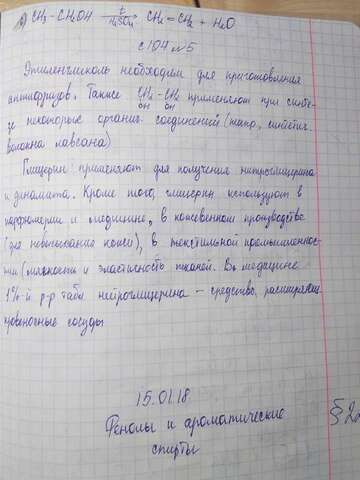 б) CH₃ - CH₂OH →(t, H₂SO₄) CH₂ = CH₂ + H₂O
с 104 №5
Этиленгликоль необходим для приготовления
антифризов. Также CH₂ - CH₂ применяют при синте-
OH OH
зе некоторые органич. соединений (напр, синтетич.
волокна лавсана)
Глицерин применяют для получения нитроглицерина
и динамита. Кроме того, глицерин используют в
парфюмерии и медицине, в кожевенном производстве
(для невысыхание кожи), в текстильной промышленнос-
ти (мягкость и эластичность тканей). В медицине
1%-й р-р нитроглицерина - средство, расширяющ.
кровеносные сосуды
15.01.18
Фенолы и ароматические
спирты
§ 22